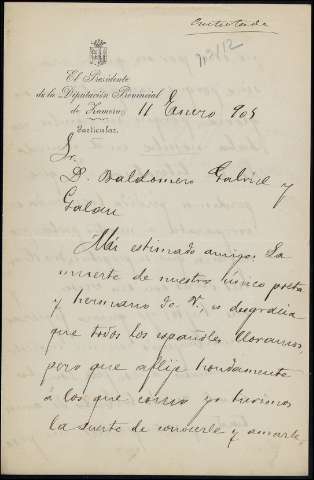 Contestada
El Presidente
de la Diputación Provincial
de Zamora
11 Enero 905
Particular.
Sr.
D. Baldomero Gabriel y
Galan
Mi estimado amigo: La
muerte de nuestro único poeta
y hermano de V., es desgracia
que todos los españoles lloramos,
pero que aflije hondamente
á los que como yo tuvimos
la suerte de conocerle y amarle,